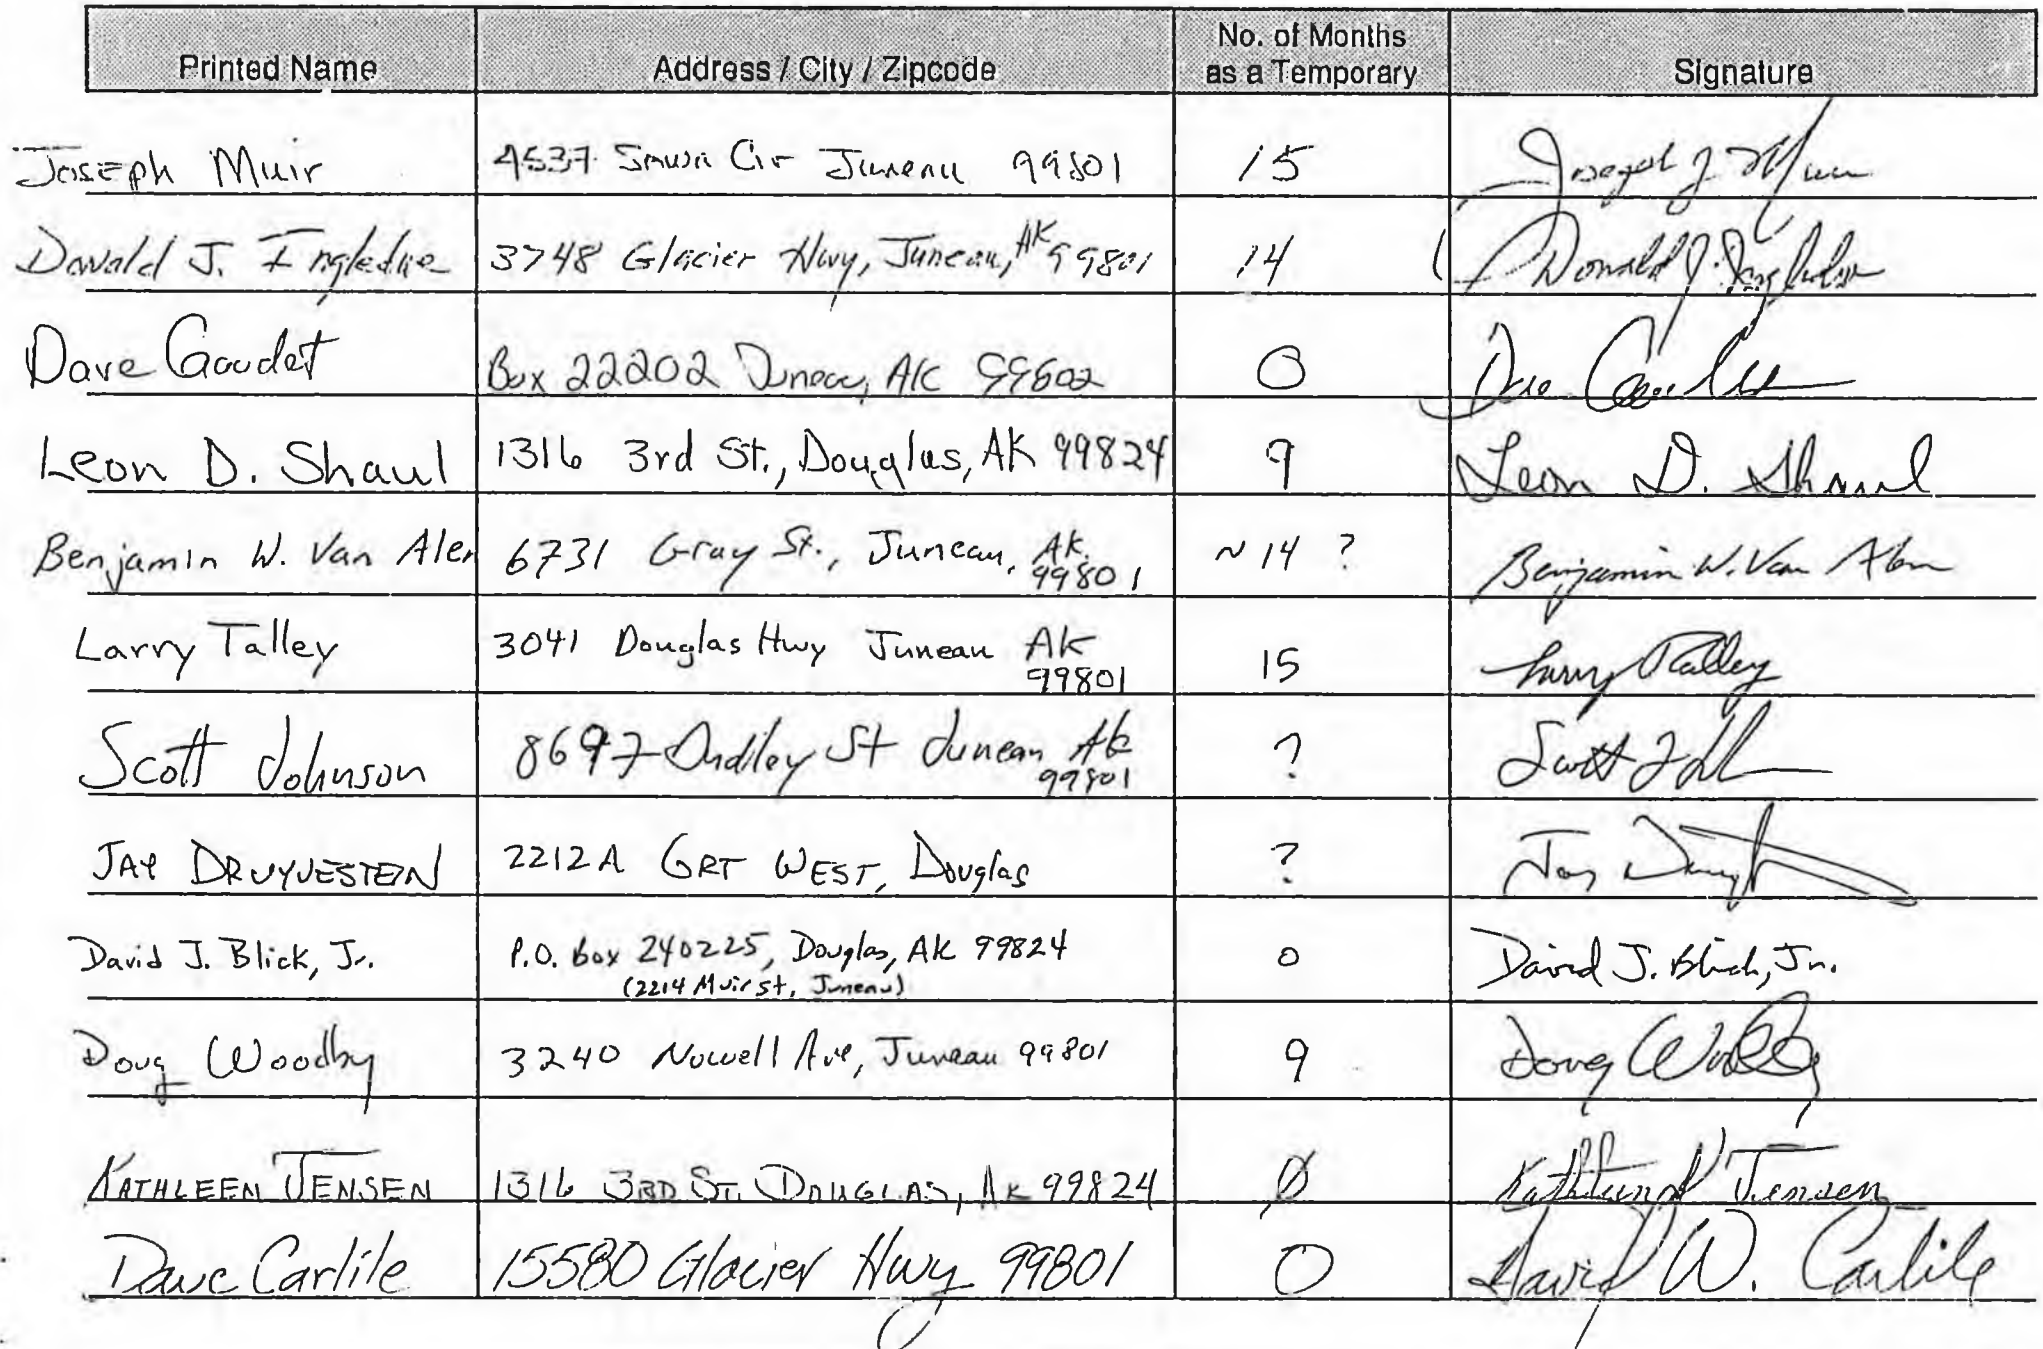 Printed Name Address / City / Zipcode No. of Months as a Temporary Signature
Joseph Muir 4537 Cir Juneau 99801 15 Joseph J Muir
Donald J. Ingledue 3748 Glacier Hwy, Juneau, AK 99801 14 Donald J. Ingledue
Dave Gaudet Box 22202 Juneau, AK 99802 0 Dave
Leon D. Shaul 1316 3rd St., Douglas, AK 99824 9 Leon D. Shaul
Benjamin W. Van Alen 6731 Gray St., Juneau, AK. 99801 ~ 14 ? Benjamin W. Van Alen
Larry Talley 3041 Douglas Hwy Juneau AK 99801 15 Larry Talley
Scott Johnson 8697 Dudley St Juneau Ak 99801 ? Scott
JAY DRUYVESTEIN 2212A GRT WEST, Douglas ? Jay
David J. Blick, Jr. P.O. Box 240225, Douglas, AK 99824 0 David J. Blick, Jr.
(2214 Muir St, Juneau)
Doug Woodby 3240 Nowell Ave, Juneau 99801 9 Doug Woodby
KATHLEEN JENSEN 1316 3RD ST. DOUGLAS, AK 99824 0 Kathleen Jensen
Dave Carlile 15580 Glacier Hwy 99801 0 David W. Carlile